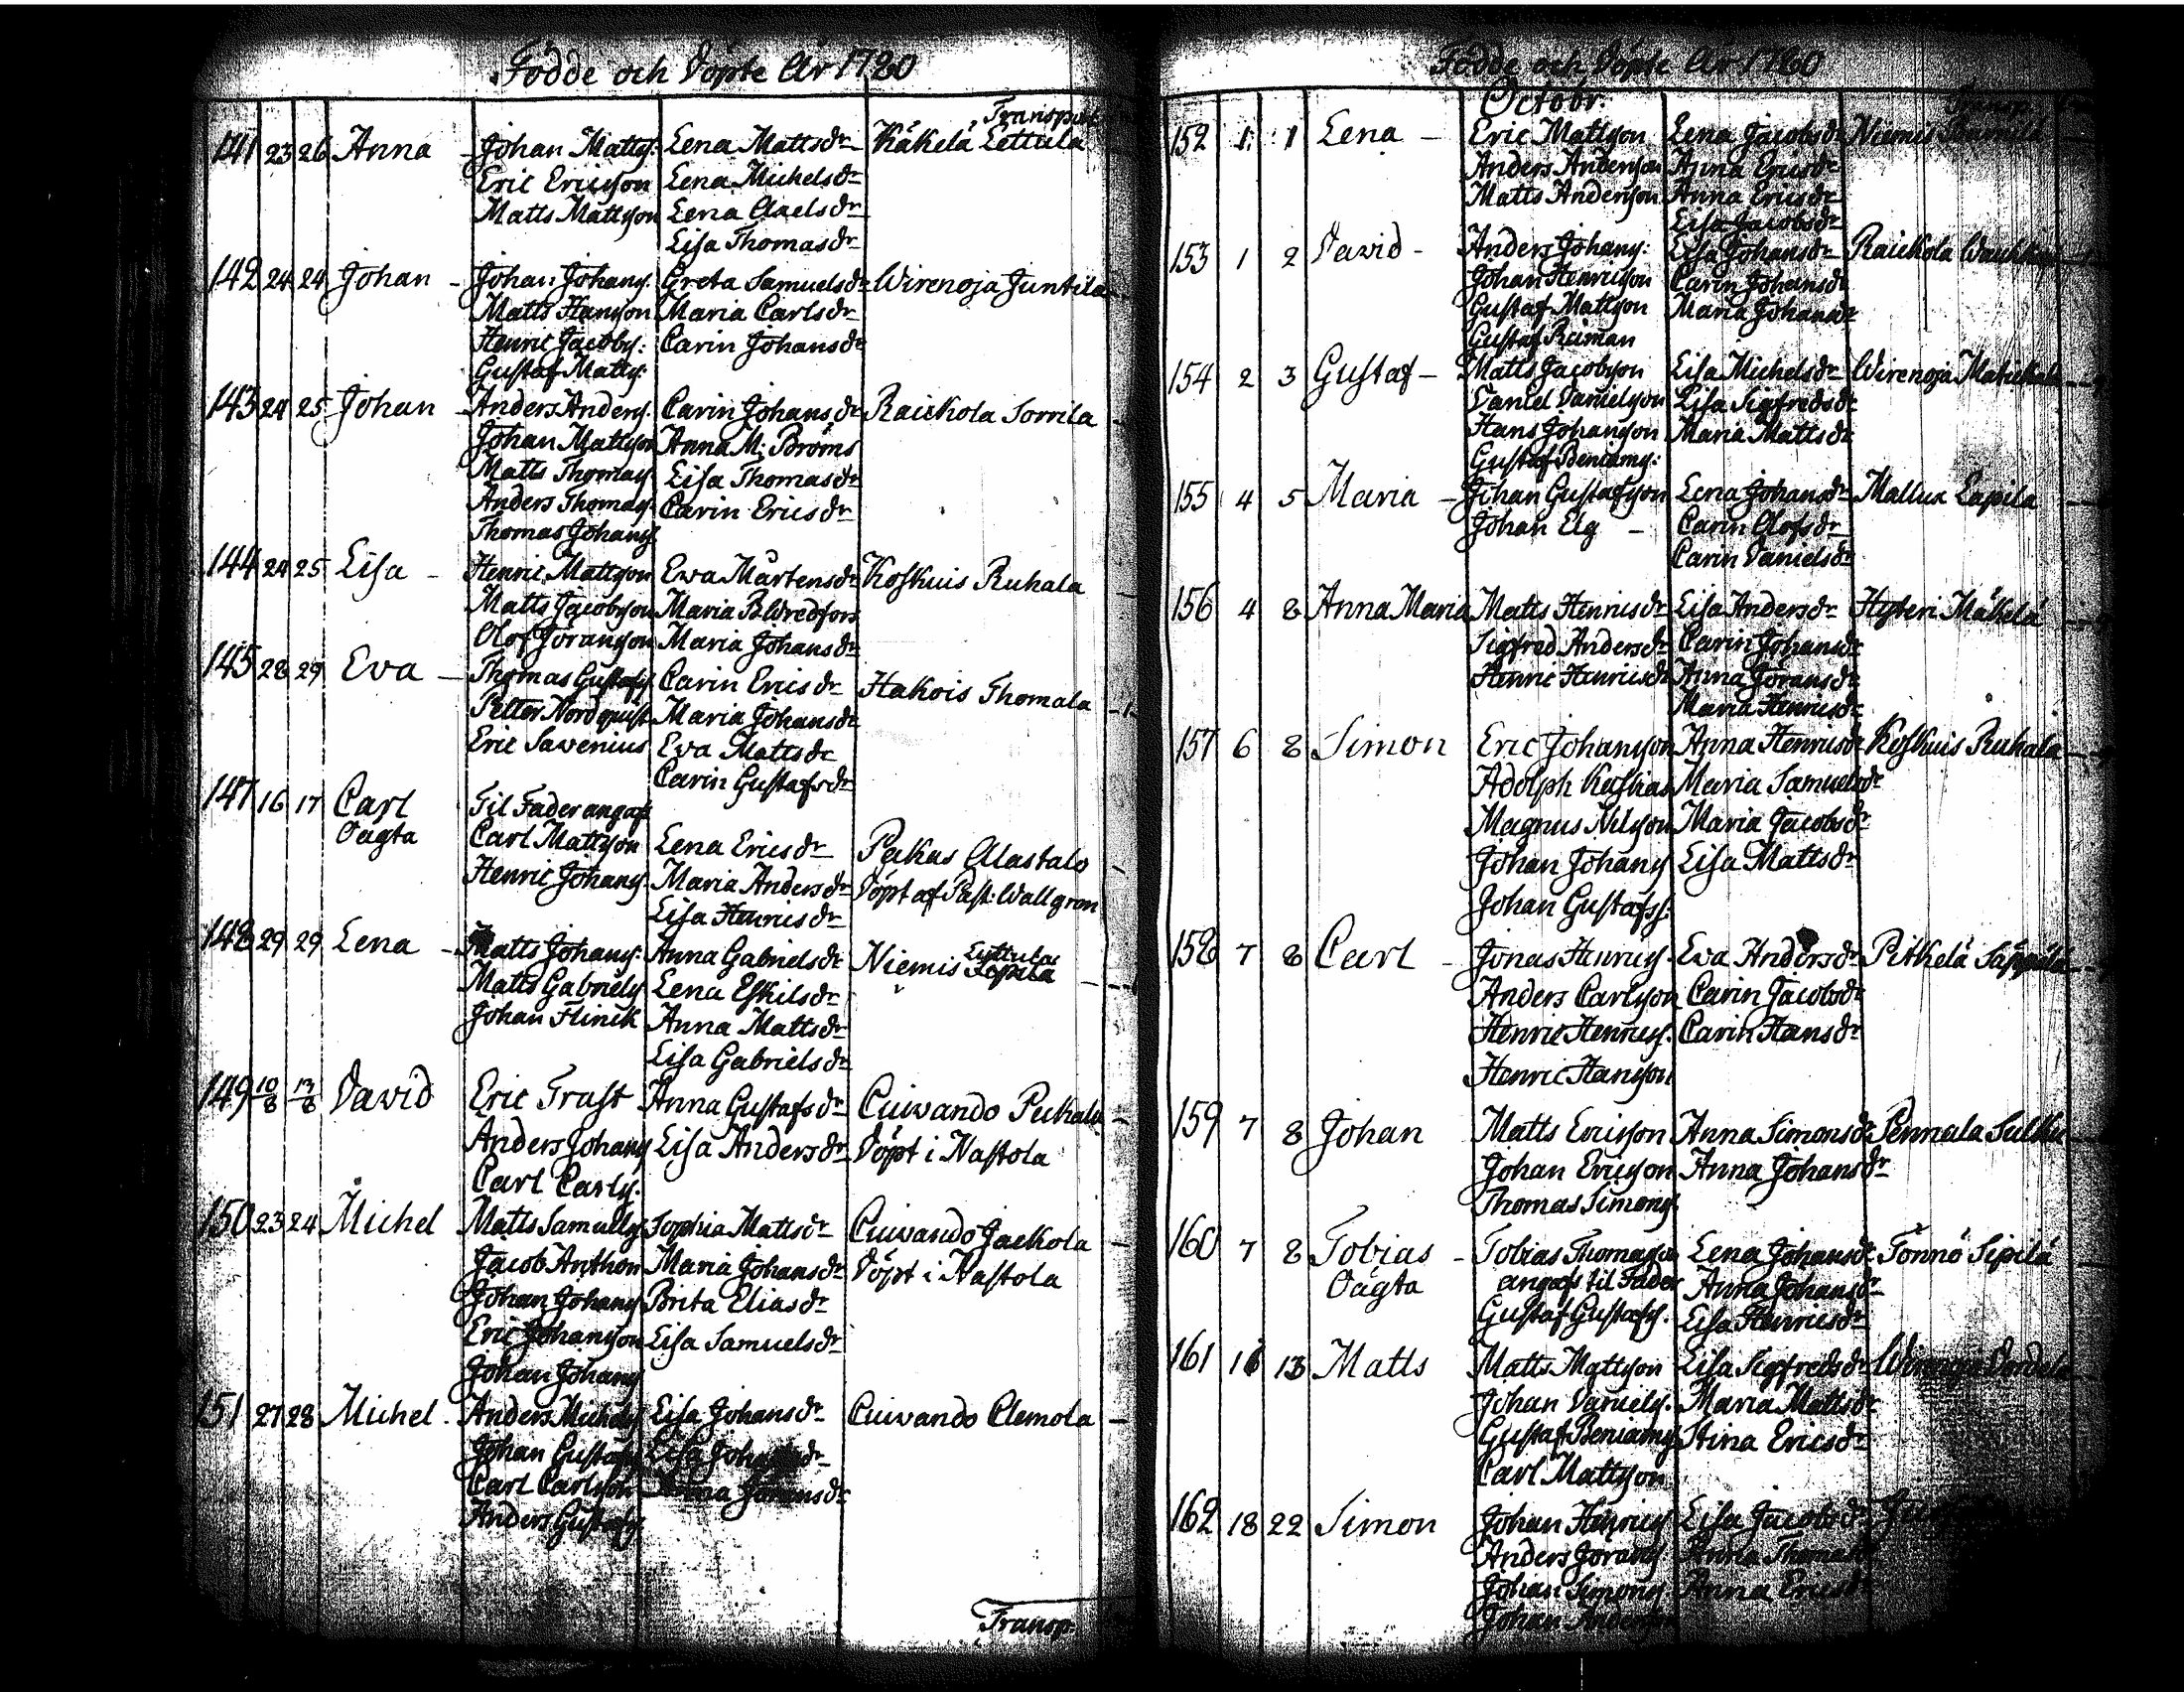 Födde och Döpte År 1780
Transport
141 23 26 Anna - Johan Mattss: Lena Mattsdr Käkelä Lettula
Eric Ericsson Lena Michelsdr
Matts Mattsson Lena Claesdr
Lisa Thomasdr
142 24 24 Johan - Johan Johanss: Greta Samuelsdr Wirenoja Juntila
Matts Hansson Maria Carlsdr
Henric Jacobss: Carin Johansdr
Gustaf Mattss:
143 24 25 Johan - Anders Anderss. Carin Johansdr Raickola Sorrila
Johan Mattsson Anna M: Bröms
Matts Thomass Lisa Thomasdr
Anders Thomass. Carin Ericsdr
Thomas Johanss
144 24 25 Lisa - Henric Mattsson Ewa Mårtensdr Koskuis Ruhala
Matts Jacobsson Maria B. Wredfors
Olof Göransson Maria Johansdr
145 28 29 Eva - Thomas Gustafss Carin Ericsdr Hakois Thomala
Petter Nordquist Maria Johansdr
Eric Savenius Eva Mattsdr
Carin Gustafsdr
147 16 17 Carl Til Fader angafs
Oägta Carl Mattsson Lena Ericsdr Pakas Alastalo
Henric Johanss. Maria Andersdr Döpt af Past: Wallgren
Lisa Henricsdr
148 29 29 Lena - Matts Johanss: Anna Gabrielsdr Niemis Lettula
Matts Gabrielss Lena Eskilsdr
Johan Flinck Anna Mattsdr
Lisa Gabrielsdr
149 10/8 13/8 David Eric Trast Anna Gustafsdr Cuiwando Pukala
Anders Johanss Lisa Andersdr Döpt i Nastola
Carl Carlss.
150 23 24 Michel Matts Samuelss Sophia Mattsdr Cuiwando Jackola
Jacob Anthon Maria Johansdr Döpt i Nastola
Johan Johanss Brita Eliasdr
Eric Johansson Lisa Samuelsdr
Johan Johanss
151 27 28 Michel. Anders Michelss Lisa Johansdr Cuiwando Clemola
Johan Gustafss Lisa
Carl Carlsson Anna
Anders Gustafss
Transp.
Födde och Döpte År 1780
Octobr. Transp.
152 1. 1 Lena - Eric Mattsson Lena Jacobsdr Niemis
Anders Andersson Anna Ericsdr
Matts Andersson Anna Ericsdr
Lisa Jacobsdr
153 1 2 David - Anders Johanss: Lisa Johansdr Raickola
Johan Henricsson Carin Johansdr
Gustaf Mattsson Maria Johansdr
Gustaf Reiman
154 2 3 Gustaf - Matts Jacobsson Lisa Michelsdr Wirenoja
Daniel Danielsson Lisa Sigfredsdr
Hans Johansson Maria Mattsdr
Gustaf Beniamss:
155 4 5 Maria - Johan Gustafsson Lena Johansdr Mallux Lapila
Johan Elg - Carin Olofsdr
Carin Danielsdr
156 4 8 Anna Maria Matts Henricsdr Lisa Andersdr Hyteri Mäkelä
Sigfred Andersdr Carin Johansdr
Henric Henricsdr Anna Göransdr
Maria Henricsdr
157 6 8 Simon Eric Johansson Anna Henricsdr Koskuis Ruhala
Adolph Maria Samuelsdr
Magnus Nilsson Maria Jacobsdr
Johan Johanss Lisa Mattsdr
Johan Gustafss:
158 7 8 Carl - Jonas Henricss. Eva Andersdr Pitkelä Säppälä
Anders Carlsson Carin Jacobsdr
Henric Henricss. Carin Hansdr
Henric Hansson
159 7 8 Johan Matts Ericsson Anna Simonsdr Pennala Sulku
Johan Ericsson Anna Johansdr
Thomas Simonss.
160 7 8 Tobias - Tobias Thomasson Lena Johansdr Tönnö Sipilä
Oägta angafs til Fader Anna Johansdr
Gustaf Gustafss. Lisa Henricsdr
161 11 13 Matts Matts Mattsson Lisa Sigfredsdr
Johan Danielss. Maria Mattsdr
Gustaf Beniamss Stina Ericsdr
Carl Mattsson
162 18 22 Simon Johan Henricss Lisa Jacobsdr
Anders Göranss Anna Thomasdr
Johan Simonss. Anna Ericsdr
Johan Andersson